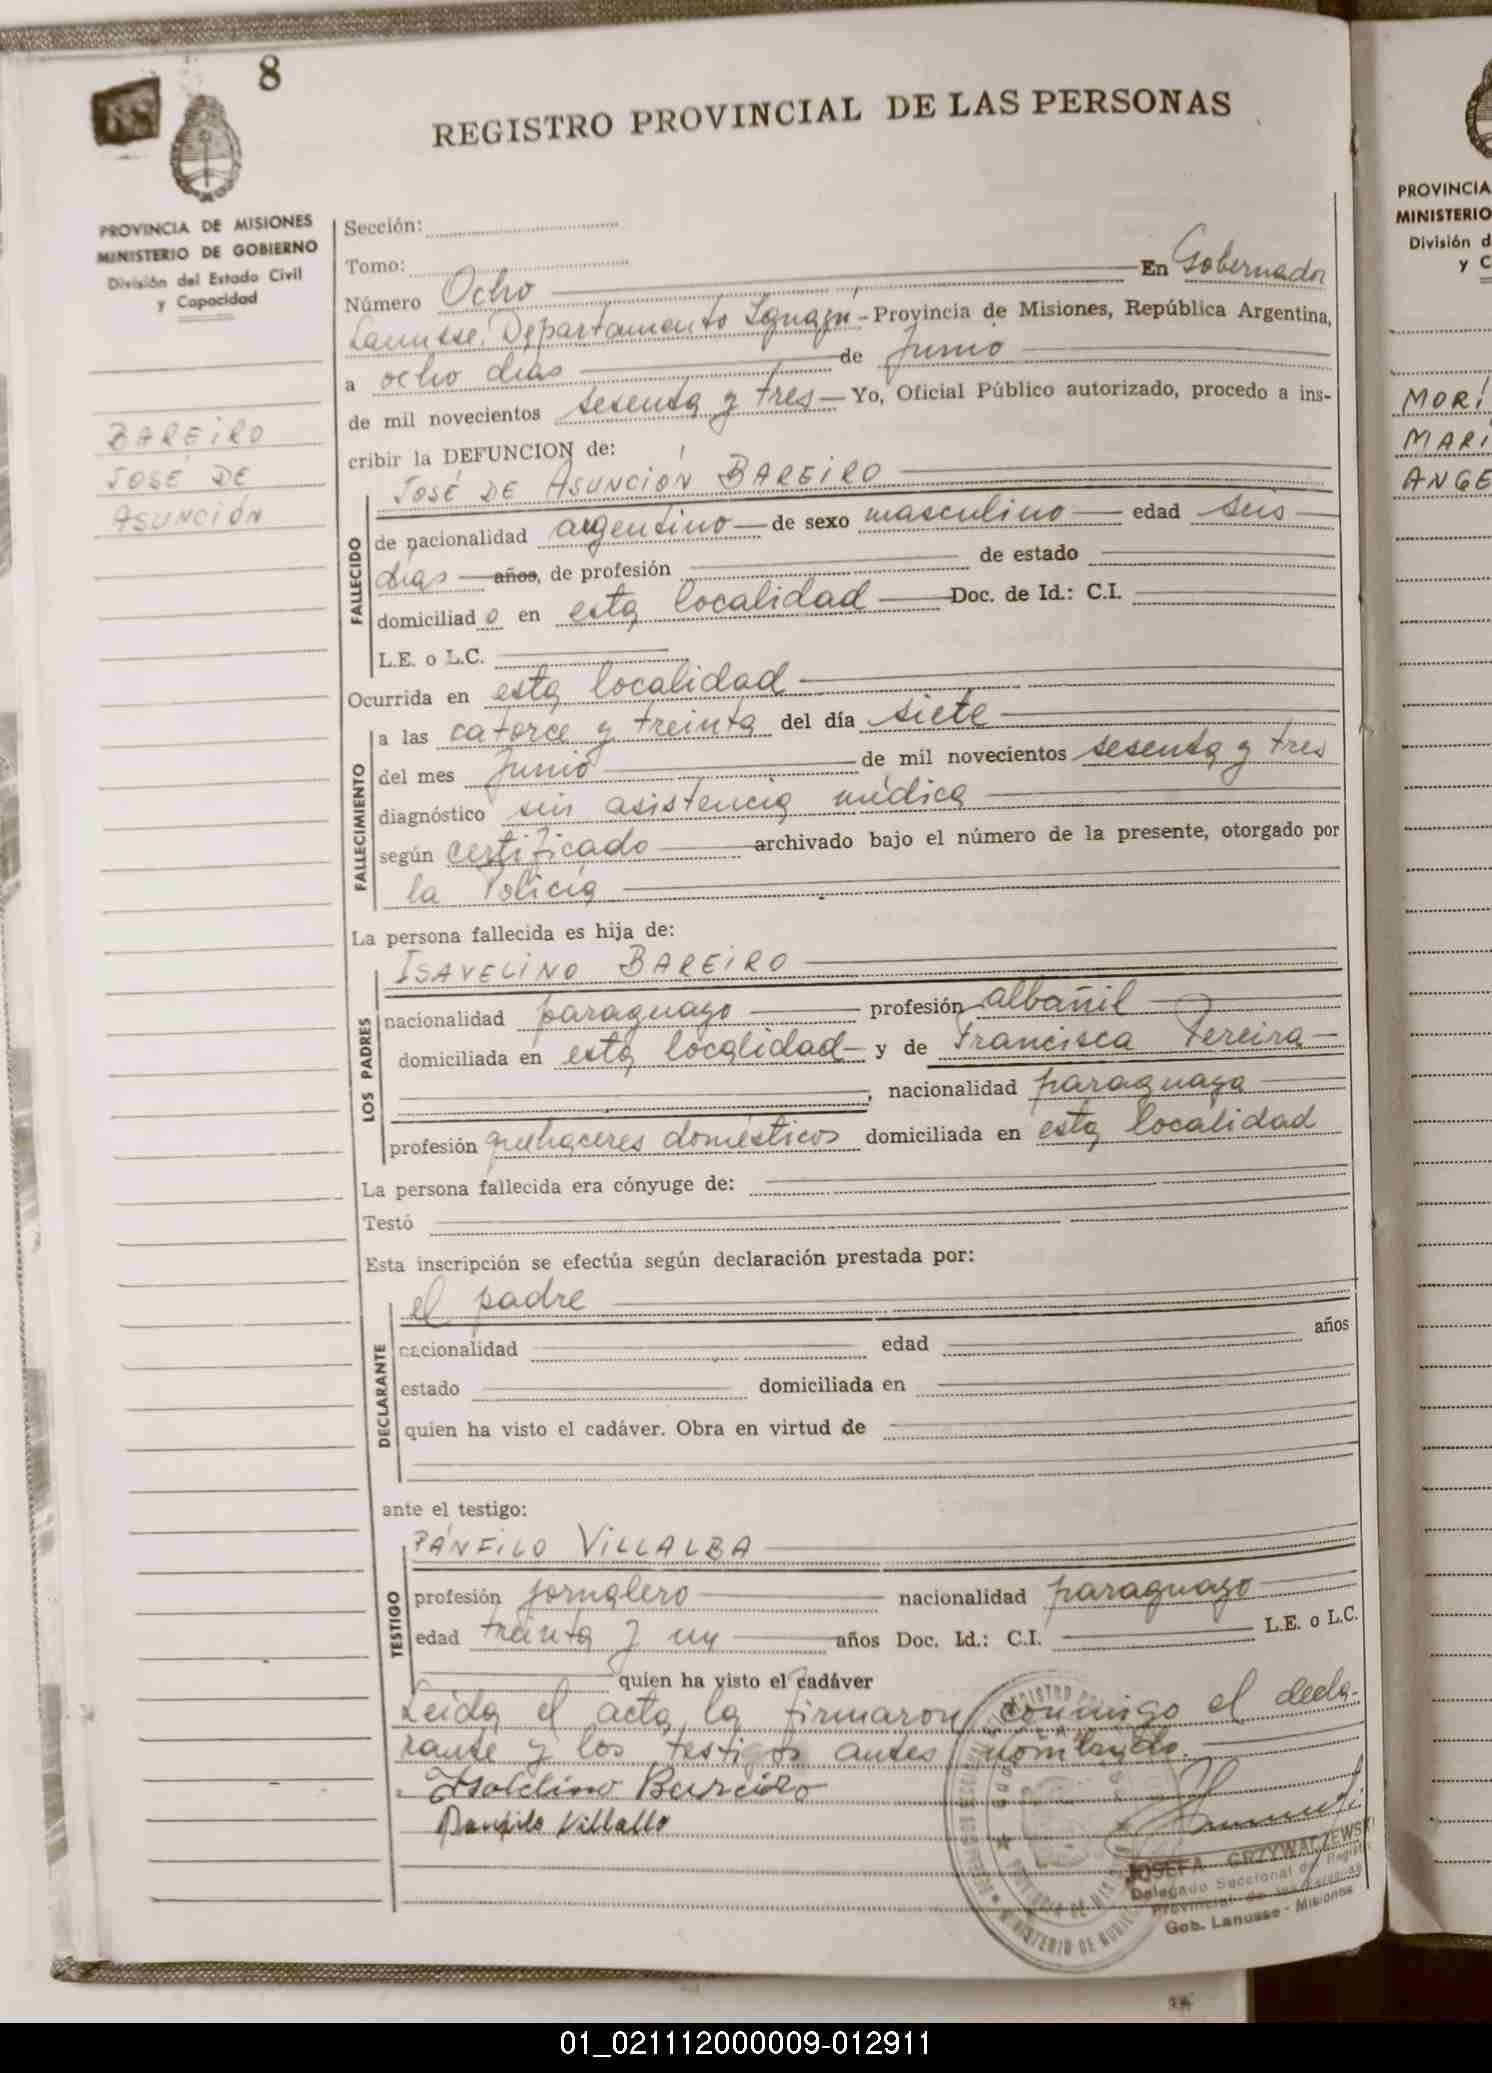 8
REGISTRO PROVINCIAL DE LAS PERSONAS
PROVINCIA DE MISIONES
MINISTERIO DE GOBIERNO
División del Estado Civil
y Capacidad
BAREIRO
JOSÉ DE
ASUNCIÓN
Sección:
Tomo:
Número Ocho En Gobernador
Lanusse, Departamento Iguazú - Provincia de Misiones, República Argentina,
a ocho días de Junio
de mil novecientos sesenta y tres Yo, Oficial Público autorizado, procedo a ins-
cribir la DEFUNCION de:
FALLECIDO
JOSÉ DE ASUNCIÓN BAREIRO
de nacionalidad argentino de sexo masculino edad seis
días años, de profesión de estado
domiciliado en esta localidad Doc. de Id.: C.I.
L.E. o L.C.
Ocurrida en esta localidad
FALLECIMIENTO
a las catorce y treinta del día siete
del mes Junio de mil novecientos sesenta y tres
diagnóstico sin asistencia médica
según certificado archivado bajo el número de la presente, otorgado por
la Policía
La persona fallecida es hija de:
LOS PADRES
ISAVELINO BAREIRO
nacionalidad paraguayo profesión albañil
domiciliada en esta localidad y de Francisca Pereira
, nacionalidad paraguaya
profesión quehaceres domésticos domiciliada en esta localidad
La persona fallecida era cónyuge de:
Testó
Esta inscripción se efectúa según declaración prestada por:
DECLARANTE
el padre
nacionalidad edad años
estado domiciliada en
quien ha visto el cadáver. Obra en virtud de
ante el testigo:
TESTIGO
PÁNFILO VILLALBA
profesión jornalero nacionalidad paraguayo
edad treinta y un años Doc. Id.: C.I. L.E. o L.C.
quien ha visto el cadáver
Leída el acta la firmaron conmigo el decla-
rante y los testigos antes nombrado.
Bareiro
Panfilo Villalba
JOSEFA GRZYWACZEWSKI
Delegado Seccional del Registro
Provincial de las Personas
Gob. Lanusse - Misiones
PROVINCIA
MINISTERIO
División d
y C
MORÍ
MARI
ANGE
01_021112000009-012911